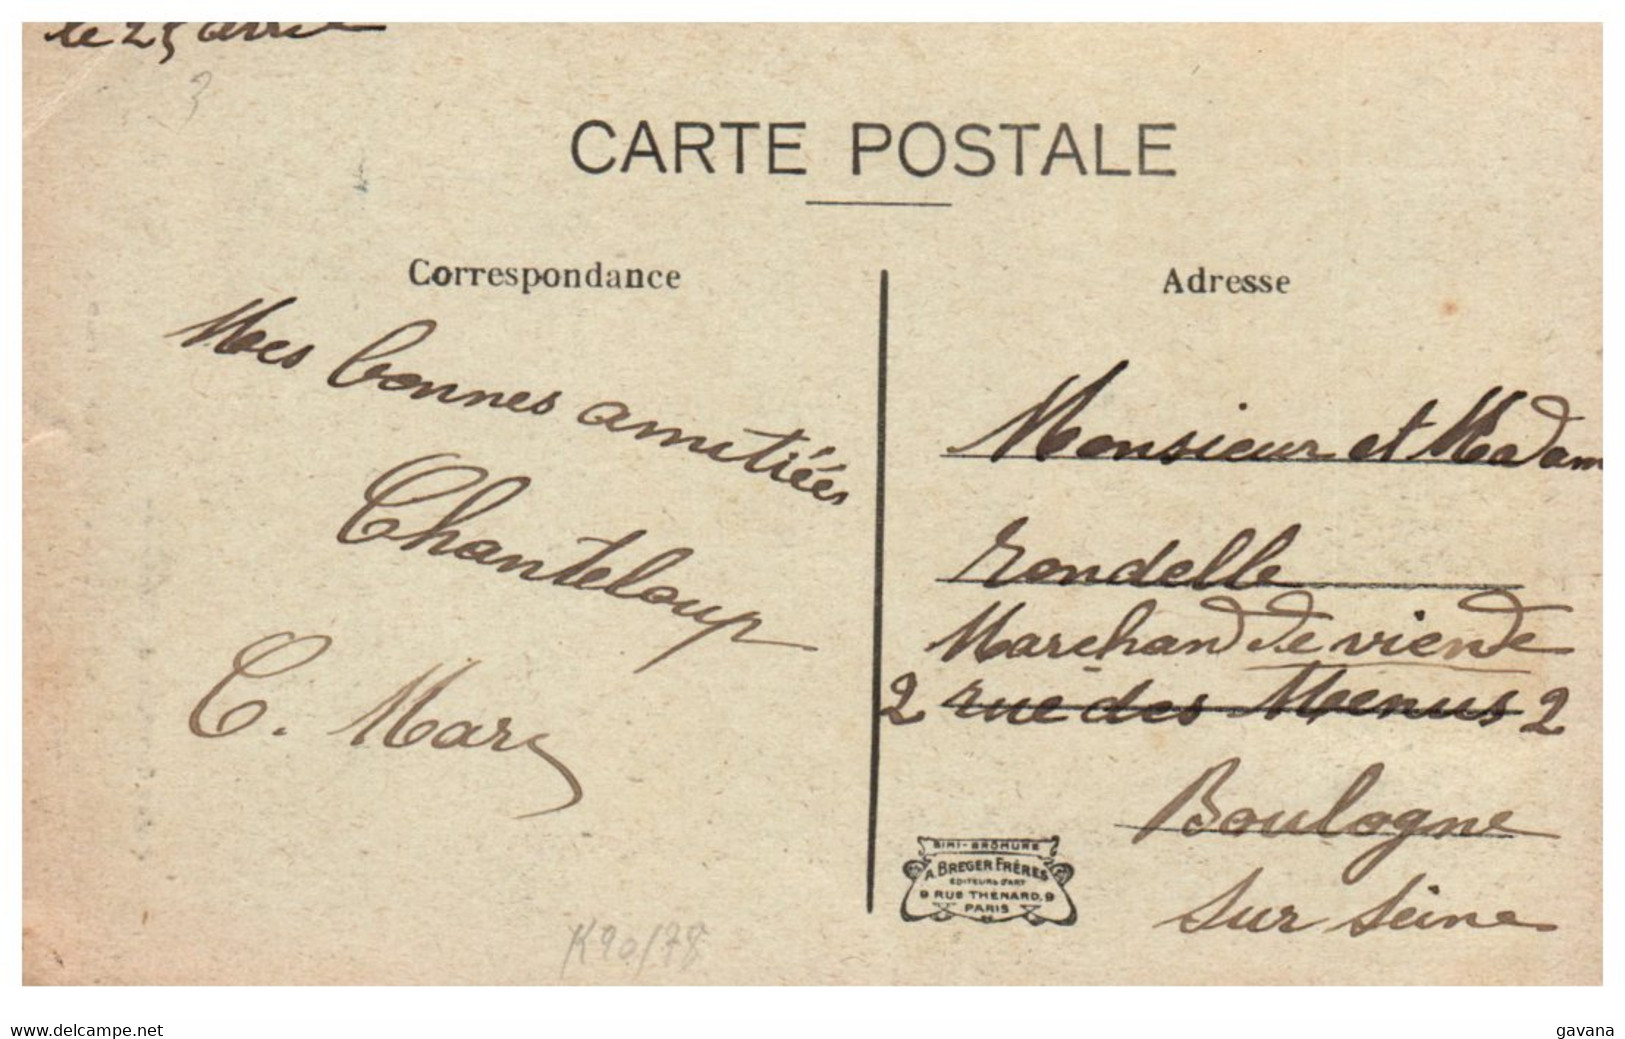 le 25 avril
3
CARTE POSTALE
Correspondance
Mes bonnes amitiées
Chanteloup
C. Mars
K90/78
Adresse
Monsieur et Madam
Rondelle
Marchand de viende
2 rue des Menus 2
Boulogne
sur Seine
SIMI-BROMURE
A. BREGER FRÈRES
ÉDITEURS D'ART
9 RUE THÉNARD, 9
PARIS
www.delcampe.net
gavana